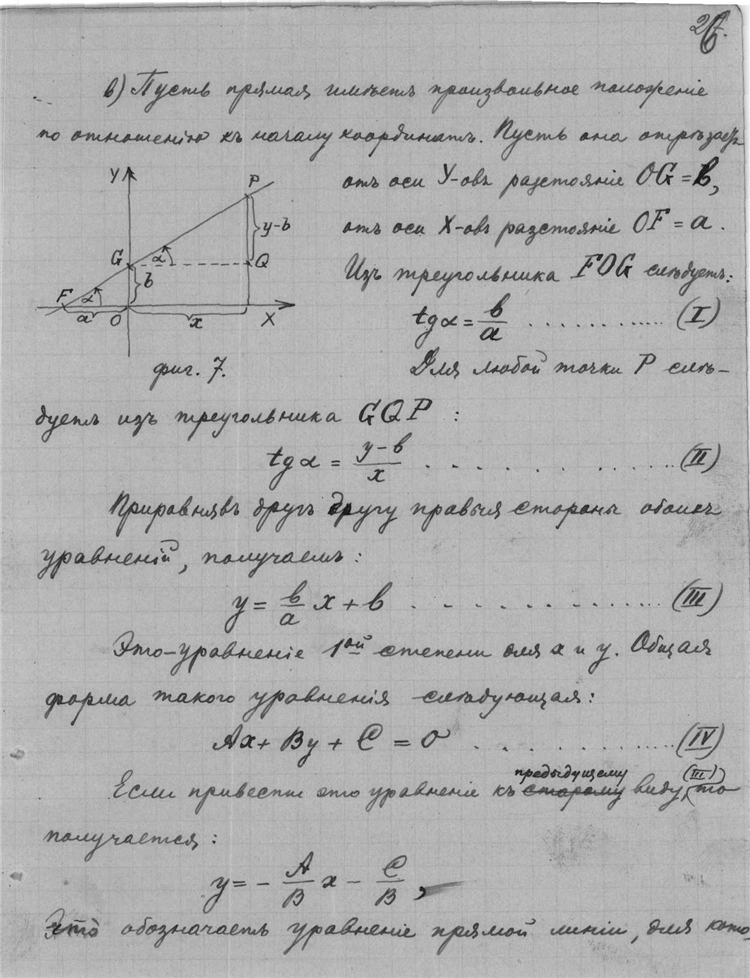 26.
в) Пусть прямая имѣетъ произвольное положеніе
по отношенію къ началу координатъ. Пусть она отрѣзаетъ
отъ оси У-овъ разстояніе OG = b,
отъ оси X-овъ разстояніе OF = a.
Изъ треугольника FOG слѣдуетъ:
tg α = b/a ............ (I)
Для любой точки P слѣ-
Y
P
y-b
G
α
Q
b
F
α
a
O
x
X
фиг. 7.
дуетъ изъ треугольника GQP :
tg α = y-b/x ............ (II)
Приравнявъ другъ другу правыя стороны обоихъ
уравненій, получаемъ:
y = b/a x + b ............ (III)
Это-уравненіе 1ой степени для x и y. Общая
форма такого уравненія слѣдующая:
Ax + By + C = 0 ............ (IV)
Если привести это уравненіе къ старому предыдущему виду (III) то
получается:
y = - A/B x - C/B ,
Это обозначаетъ уравненіе прямой линіи, для кото-